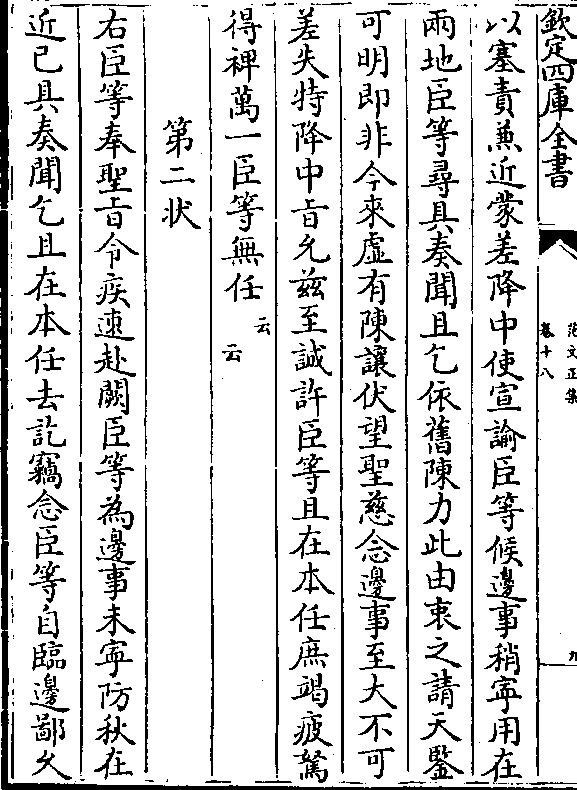 欽定四庫全書
范文正集
卷十八
九
以塞責兼近蒙差降中使宣諭臣等候邊事稍寧用在
兩地臣等尋具奏聞且乞依舊陳力此由衷之請天鑒
可明即非今來虛有陳讓伏望聖慈念邊事至大不可
差失特降中旨允兹至誠許臣等且在本任庶竭疲駑
得裨萬一臣等無任云云
第二状
右臣等奉聖旨令疾速赴闕臣等為邊事未寧防秋在
近已具奏聞乞且在本任去訖竊念臣等自臨邊鄙久